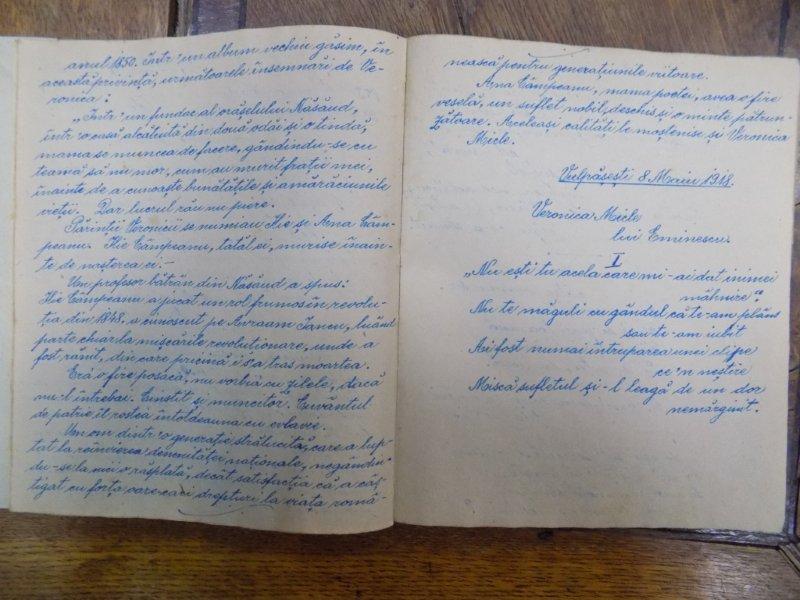 anul 1850. Într'un album vechiu găsim, în
această privință, următoarele însemnări de Ve-
ronica:
„Într'un fundac al orășelului Năsăud,
într'o casă alcătuită din două odăi și o tindă,
mama se muncea de facere, gândindu-se cu
teamă să nu mor, cum au murit frații mei,
înainte de a cunoaște bunătățile și amărăciunile
vieții. Dar lucrul rău nu piere.
Părinții Veronicii se numiau Ilie și Ana Câm-
peanu. Ilie Câmpeanu, tatăl ei, murise înain-
te de nașterea ei.-
Un profesor bătrân din Năsăud a spus:
Ilie Câmpeanu a jucat un rol frumos în revolu-
ția din 1848. a cunoscut pe Avraam Iancu, luând
parte chiar la mișcările revoluționare, unde a
fost rănit, din care pricină i s'a tras moartea.
Eră o fire posacă, nu vorbia cu zilele, dacă
nu-l întrebai. Cinstit și muncitor. Cuvântul
de patrie îl rostea întotdeauna cu evlavie.
Un om dintr'o generație strălucită, care a lup-
tat la reînvierea demnităței naționale, negândin-
du-se la nici o răsplată, decât satisfacția că a câș-
tigat cu forța oare-cari drepturi la viața româ-
nească pentru generațiunile viitoare.
Ana Câmpeanu, mama poetei, avea o fire
veselă, un suflet nobil, deschis și o minte pătrun-
zătoare. Aceleași calități le moștenise și Veronica
Micle.
8 Maiu 1918.
Veronica Micle
lui Eminescu.
I
„Nu ești tu acela care mi-ai dat inimei
mâhnire"
Nu te măguli cu gândul că te-am plâns
sau te-am iubit
Ai fost numai întruparea unei clipe
ce'n neștire
Mișcă sufletul și-l leagă de un dor
nemărginit.